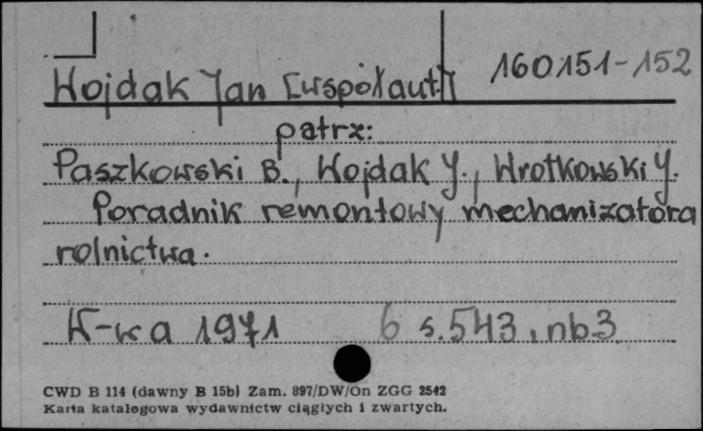 160151-152
Wojdak Jan [współaut.]
patrz:
Paszkowski B., Wojdak J., Wrotkowski J.
Poradnik remontowy mechanizatora
rolnictwa.
W-wa 1971 6 s.543, nb.3
CWD B 114 (dawny B 15b) Zam. 897/DW/On ZGG 2542
Karta katalogowa wydawnictw ciągłych i zwartych.